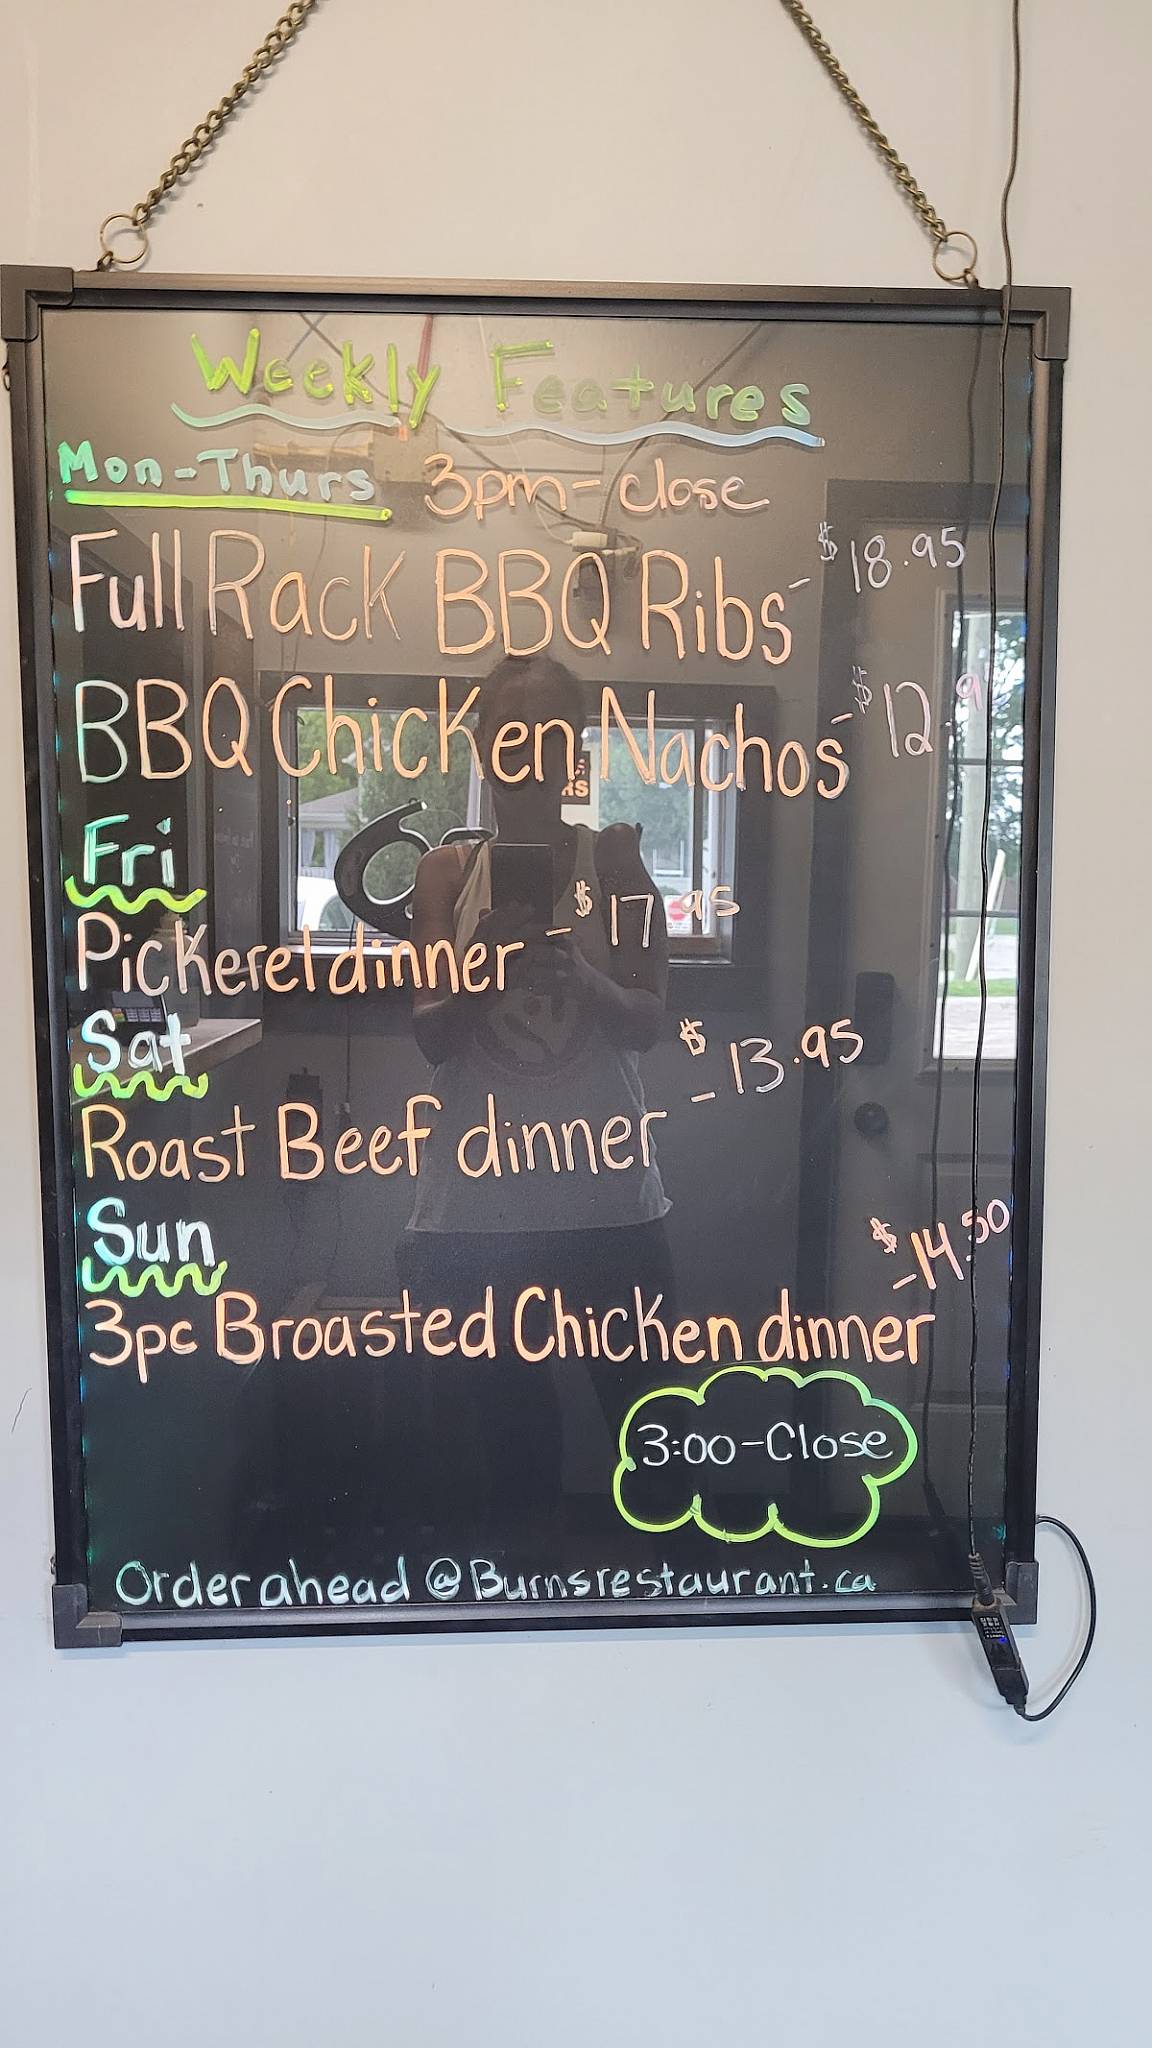 Weekly Features
Mon-Thurs 3pm-close
Full Rack BBQ Ribs - $18.95
BBQ Chicken Nachos - $12.9
Fri
Pickerel dinner - $17.95
Sat
Roast Beef dinner - $13.95
Sun
3pc Broasted Chicken dinner - $14.50
3:00-Close
Order ahead @Burnsrestaurant.ca